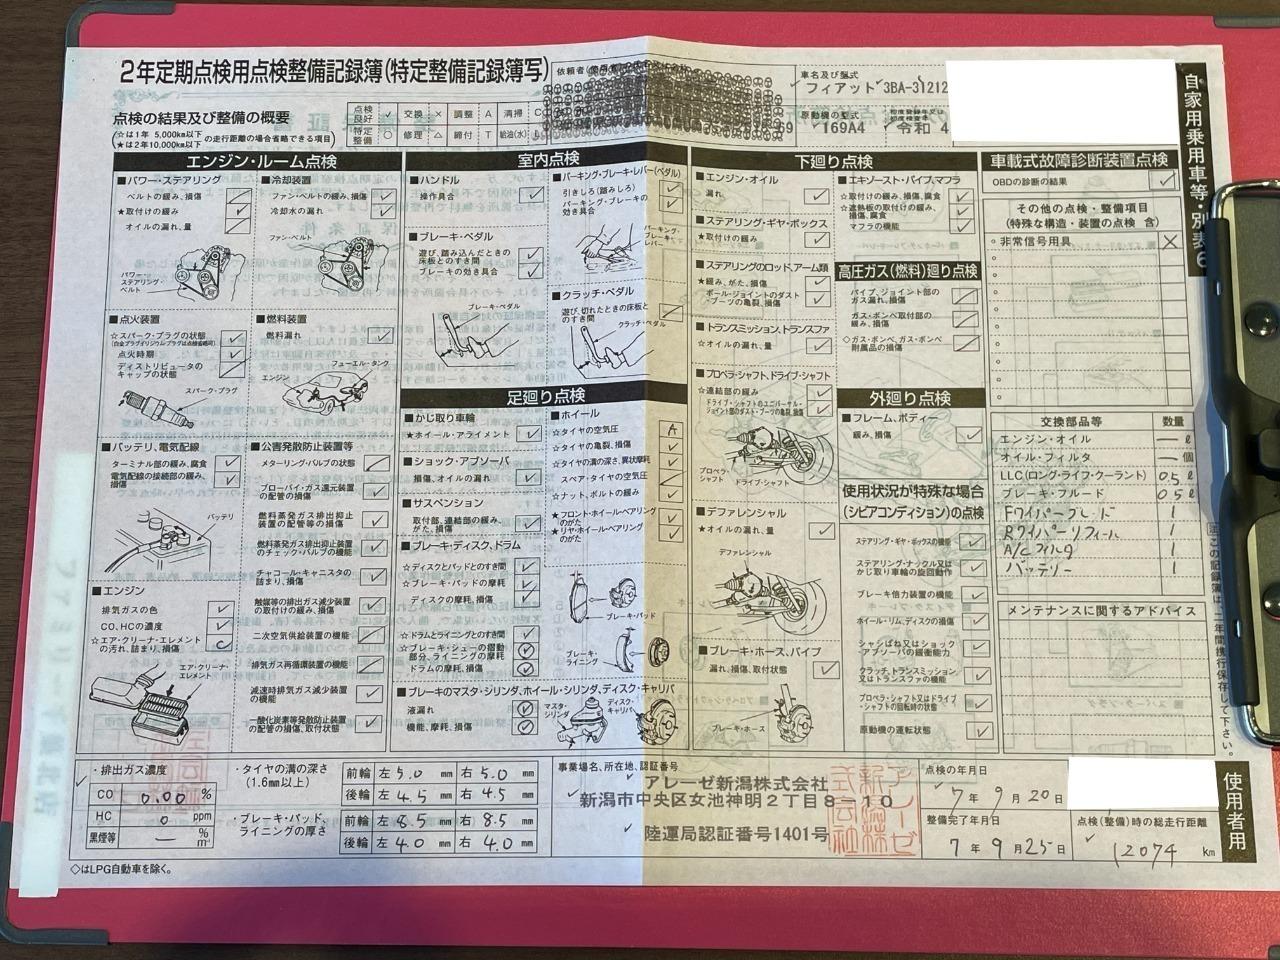 2年定期点検用点検整備記録簿(特定整備記録簿写)
車名及び型式
フィアット 3BA-31212
原動機の型式
169A4
令和 4
点検の結果及び整備の概要
(☆は1年 5,000km以下
★は2年10,000km以下
の走行距離の場合省略できる項目)
点検良好 ✓ 交換 × 調整 A 清掃 C
特定整備 ○ 修理 △ 締付 T 給油(水) L
自家用乗用車等・別表6
エンジン・ルーム点検
■パワ・ステアリング
ベルトの緩み、損傷
★取付けの緩み
オイルの漏れ、量
パワー・ステアリング・ベルト
■冷却装置
ファン・ベルトの緩み、損傷
冷却水の漏れ
ファン・ベルト
■点火装置
☆スパーク・プラグの状態
(白金プラグイリジウム・プラグは点検省略可)
点火時期
ディストリビュータのキャップの状態
スパーク・プラグ
■燃料装置
燃料漏れ
フューエル・タンク
エンジン
■バッテリ、電気配線
ターミナル部の緩み、腐食
電気配線の接続部の緩み、損傷
バッテリ
■公害発散防止装置等
メターリング・バルブの状態
ブローバイ・ガス還元装置の配管の損傷
燃料蒸発ガス排出抑止装置の配管等の損傷
燃料蒸発ガス排出抑止装置のチェック・バルブの機能
チャコール・キャニスタの詰まり、損傷
触媒等の排出ガス減少装置の取付けの緩み、損傷
二次空気供給装置の機能
排気ガス再循環装置の機能
減速時排気ガス減少装置の機能
一酸化炭素等発散防止装置の配管の損傷、取付状態
■エンジン
排気ガスの色
CO、HCの濃度
☆エア・クリーナ・エレメントの汚れ、詰まり、損傷
エア・クリーナ・エレメント
室内点検
■ハンドル
操作具合
■ブレーキ・ペダル
遊び、踏み込んだときの床板とのすき間
ブレーキの効き具合
ブレーキ・ペダル
■パーキング・ブレーキ・レバー(ペダル)
引きしろ(踏みしろ)
パーキング・ブレーキの効き具合
パーキング・ブレーキ・レバー
■クラッチ・ペダル
遊び、切れたときの床板とのすき間
クラッチ・ペダル
足廻り点検
■かじ取り車輪
★ホイール・アライメント
■ショック・アブソーバ
損傷、オイルの漏れ
■サスペンション
取付部、連結部の緩み、がた、損傷
■ブレーキ・ディスク、ドラム
☆ディスクとパッドとのすき間
☆ブレーキ・パッドの摩耗
ディスクの摩耗、損傷
☆ドラムとライニングとのすき間
☆ブレーキ・シューの摺動部分、ライニングの摩耗
ドラムの摩耗、損傷
■ホイール
☆タイヤの空気圧
☆タイヤの亀裂、損傷
☆タイヤの溝の深さ、異状摩耗
スペア・タイヤの空気圧
☆ナット、ボルトの緩み
★フロント・ホイール・ベアリングのがた
★リヤ・ホイール・ベアリングのがた
ブレーキ・パッド
ブレーキ・ライニング
■ブレーキのマスタ・シリンダ、ホイール・シリンダ、ディスク・キャリパ
液漏れ
機能、摩耗、損傷
マスタ・シリンダ
ディスク・キャリパ
下廻り点検
■エンジン・オイル
漏れ
■ステアリング・ギヤ・ボックス
★取付けの緩み
■ステアリングのロッド、アーム類
★緩み、がた、損傷
ボール・ジョイントのダスト・ブーツの亀裂、損傷
■トランスミッション、トランスファ
☆オイルの漏れ、量
■プロペラ・シャフト、ドライブ・シャフト
☆連結部の緩み
ドライブ・シャフトのユニバーサル・ジョイント部のダスト・ブーツの亀裂、損傷
プロペラ・シャフト
ドライブ・シャフト
■デファレンシャル
★オイルの漏れ、量
デファレンシャル
■ブレーキ・ホース、パイプ
漏れ、損傷、取付状態
ブレーキ・ホース
■エキゾースト・パイプ、マフラ
☆取付けの緩み、損傷、腐食
☆遮熱板の取付けの緩み、損傷、腐食
マフラの機能
高圧ガス(燃料)廻り点検
パイプ、ジョイント部のガス漏れ、損傷
ガス・ボンベ取付部の緩み、損傷
◇ガス・ボンベ、ガス・ボンベ附属品の損傷
外廻り点検
■フレーム、ボディー
緩み、損傷
使用状況が特殊な場合
(シビアコンディション)の点検
ステアリング・ギヤ・ボックスの機能
ステアリング・ナックル又はかじ取り車輪の旋回動作
ブレーキ倍力装置の機能
ホイール・リム、ディスクの損傷
シャシばね又はショック・アブソーバの緩衝能力
クラッチ、トランスミッション、又はトランスファの機能
プロペラ・シャフト又はドライブ・シャフトの回転時の状態
原動機の運転状態
車載式故障診断装置点検
OBDの診断の結果
その他の点検・整備項目
(特殊な構造・装置の点検 含)
非常信号用具
交換部品等 数量
エンジン・オイル ― ℓ
オイル・フィルタ ― 個
LLC(ロング・ライフ・クーラント) 0.5 ℓ
ブレーキ・フルード 0.5 ℓ
Fワイパーブレード 1
Rワイパーリフィール 1
A/Cフィルタ 1
バッテリー 1
メンテナンスに関するアドバイス
(注)この記録簿は、二年間携行保存して下さい。
使用者用
・排出ガス濃度
CO 0.00 %
HC 0 ppm
黒煙等 ― % m⁻¹
・タイヤの溝の深さ
(1.6mm以上)
前輪 左 5.0 mm 右 5.0 mm
後輪 左 4.5 mm 右 4.5 mm
・ブレーキ・パッド、ライニングの厚さ
前輪 左 8.5 mm 右 8.5 mm
後輪 左 4.0 mm 右 4.0 mm
事業場名、所在地、認証番号
アレーゼ新潟株式会社
新潟市中央区女池神明2丁目8-10
陸運局認証番号1401号
点検の年月日
7年 9月 20日
整備完了年月日
7年 9月 25日
点検(整備)時の総走行距離
12074 km
◇はLPG自動車を除く。